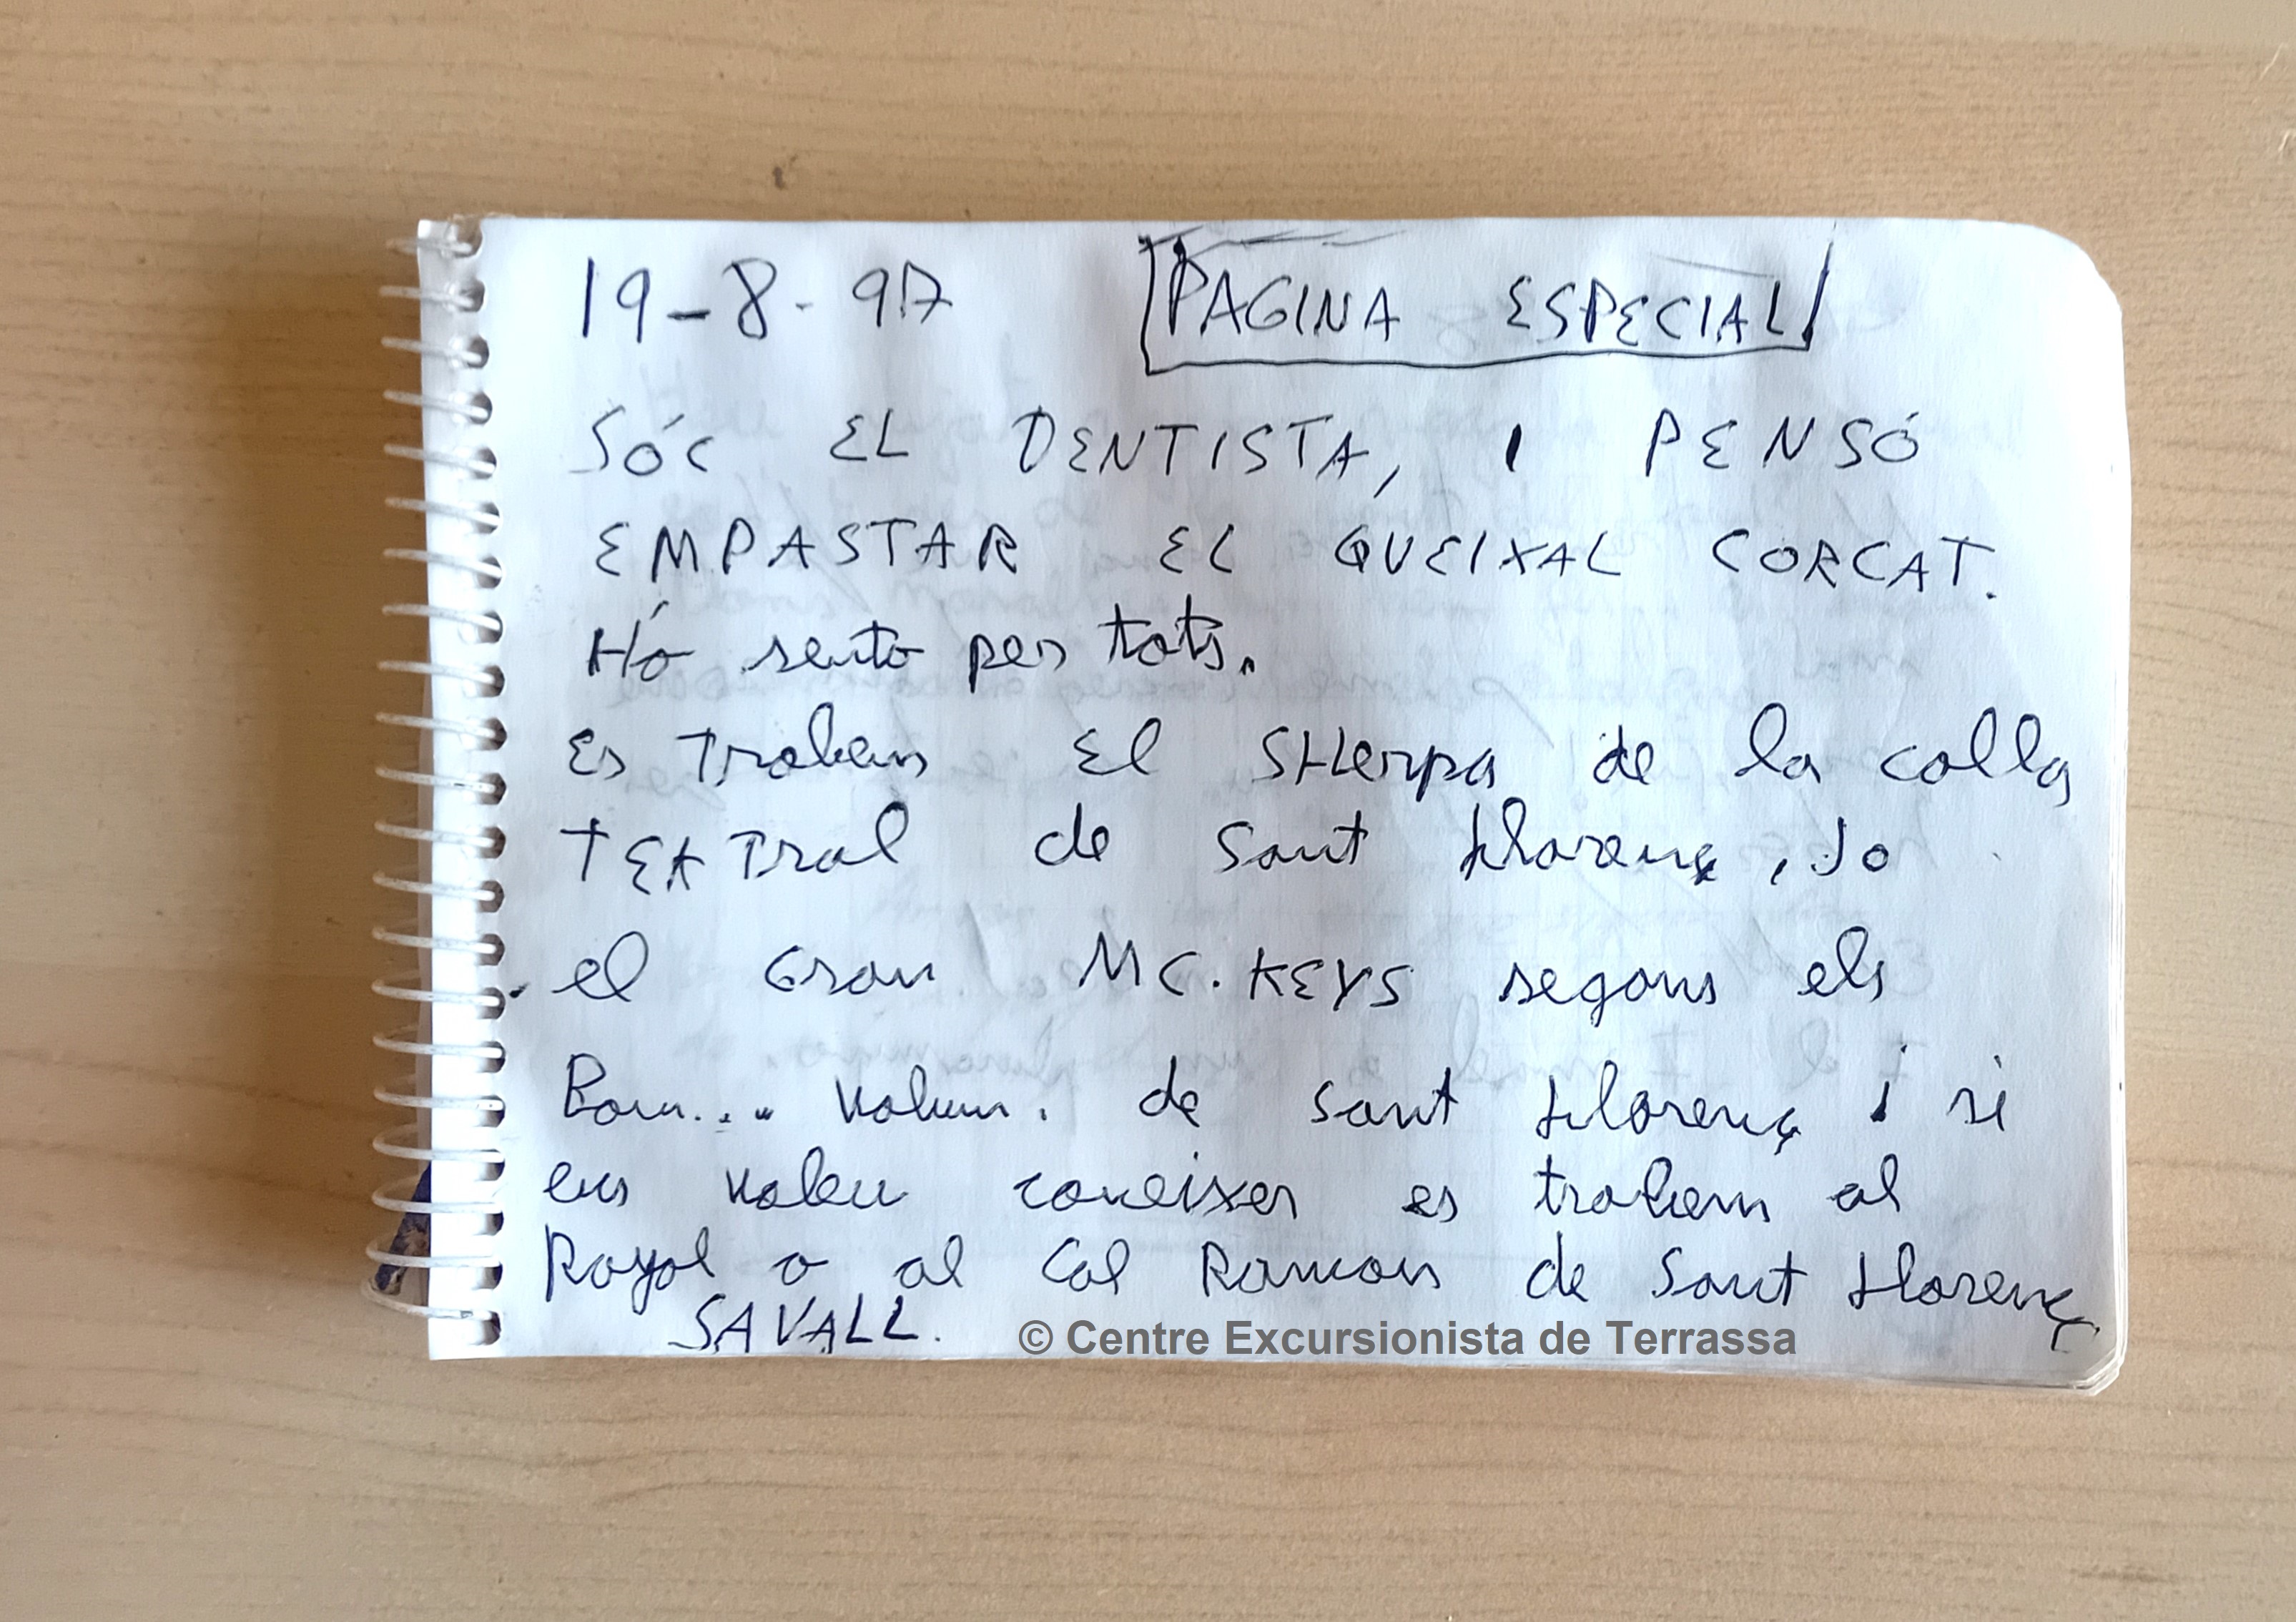 19-8-97 PAGINA ESPECIAL
SÓC EL DENTISTA, I PENSÓ
EMPASTAR EL QUEIXAL CORCAT.
Hó sento per tots.
Es Troben El SHerpa de la colla
TEATral de Sant Llorenç, Jo
el Gran MC. KEYS segons els
Bom... Volun. de Sant Llorenç i si
ens voleu coneixer es trobem al
Royal o al Cal Ramon de Sant Llorenç
SAVALL.
© Centre Excursionista de Terrassa